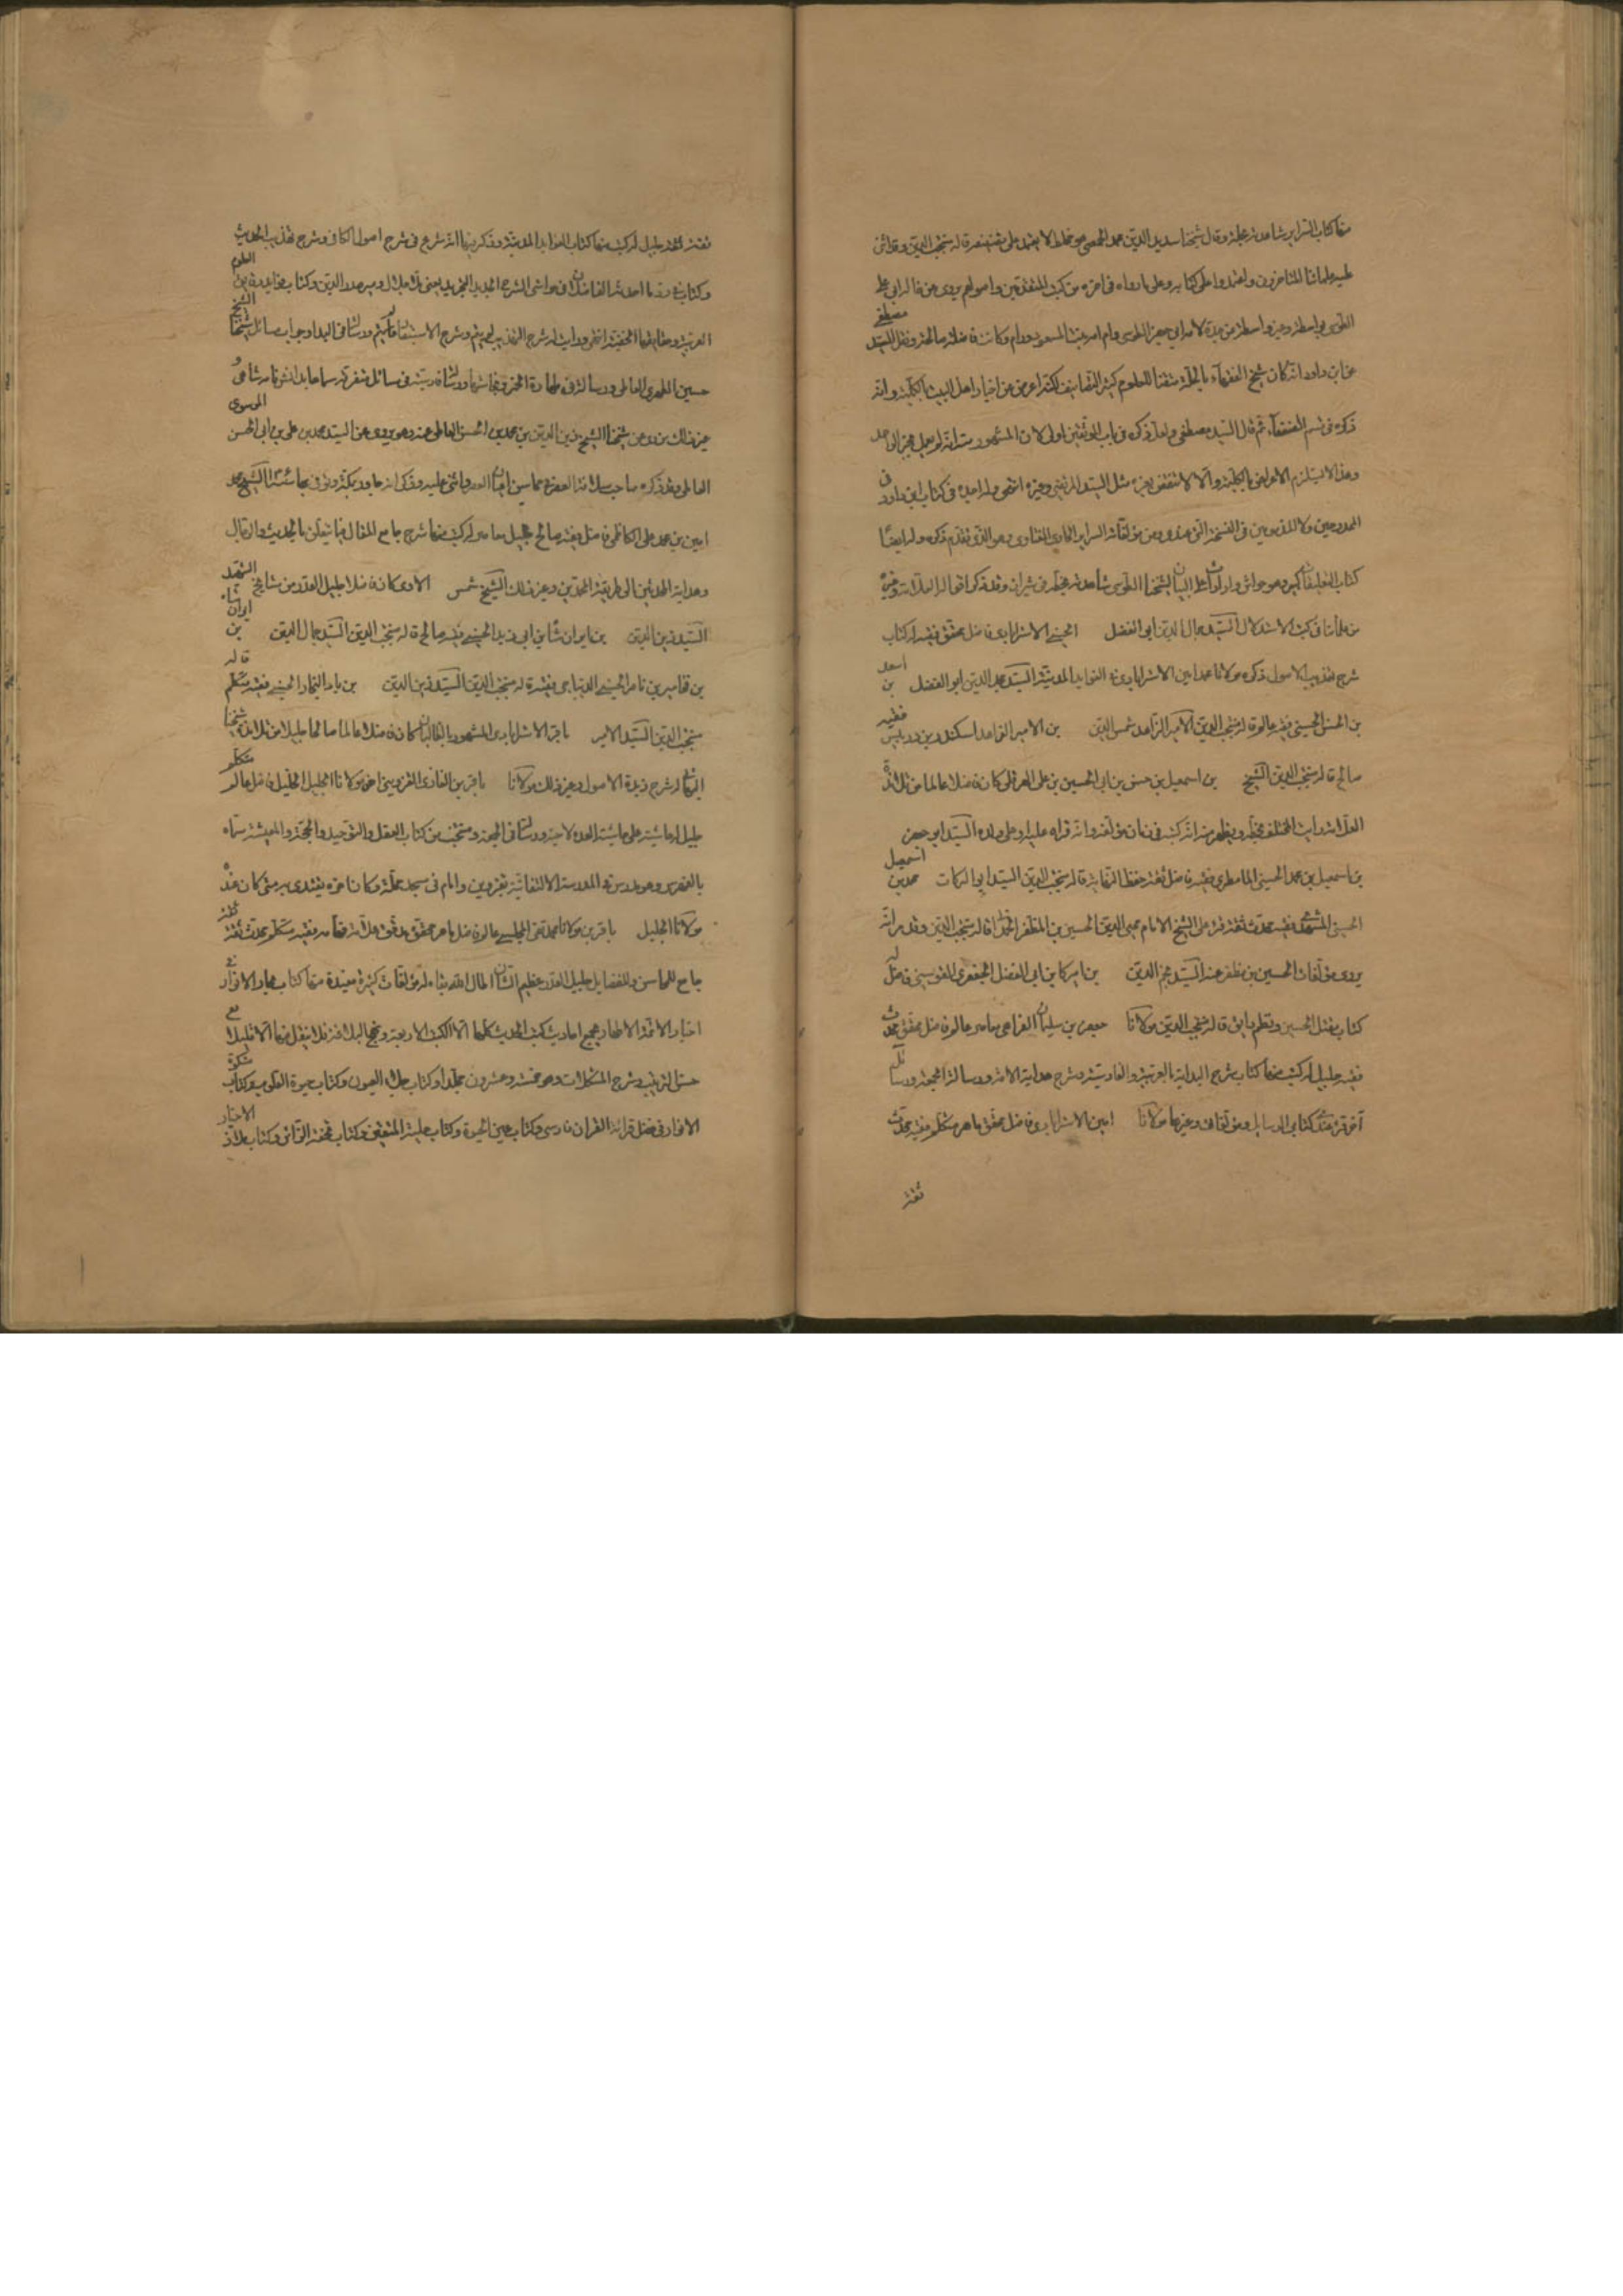 منها كتاب السراير شاهدته بحلة وقال شيخنا سديد الدين محمد الحمصي هو مخلط لا يعتمد على تصنيفه قاله منتجب الدين وقد اثنى
عليه علمائنا المتاخرون واعتمدوا على كتابه وعلى ما رواه في اخره من كتب المتقدمين واصولهم يروي عن خاله ابي علي
الطوسي بواسطة وغير واسطة وعن جدة لامه ابي جعفر الطوسي وام امه بنت المسعود ورام وكانت فاضلة صالحة ونقل السيد مصطفى
عن ابن داود انه كان شيخ الفقهاء بالحلة متقنا للعلوم كثير التصانيف لكنه اعرض عن اخبار اهل البيت بالكلية وانه
ذكره في قسم الضعفاء ثم قال السيد مصطفى ولعل ذكره في باب الموثقين اولى لان المشهور منه انه لم يعمل بخبر الواحد
وهذا لا يستلزم الاعراض بالكلية والا لانتقض بغيره مثل السيد المرتضى وغيره انتهى ولم اجده في كتاب ابن داود في
الممدوحين ولا المذمومين في النسخة التي عندي ومن مؤلفاته السراير الحاوي لتحرير الفتاوى وهو الذي تقدم ذكره وله ايضا
كتاب التعليقات كبير وهو حواش وايرادات على التبيان لشيخنا الطوسي شاهدته بخطه في شيراز وقد ذكر اقواله العلامة وغيره
من علمائنا في كتب الاستدلال السيد جمال الدين ابي الفضل الحسيني الاسترابادي فاضل محقق فقيه له كتاب
شرح تهذيب الاصول ذكره مولانا محمد امين الاسترابادي في الفوايد المدنية السيد مجد الدين ابو الفضل بن اسعد
بن الحسن الحسيني فقيه عالم قاله منتجب الدين الامير الزاهد شمس الدين بن الامير الزاهد اسكندر بن دربيس فقيه
صالح قاله منتجب الدين الشيخ بن اسمعيل بن حسن بن ابي الحسين بن علي الهرقلي كان فاضلا عالما من تلامذة
العلامة رايت المختلف بخطه ويظهر منه انه كتبه في زمان مؤلفه وانه قراه عليه او على ولده السيد ابو جعفر
بن اسمعيل بن محمد الحسيني المامطري فقيه فاضل ثقة حفظ النهاية قاله منتجب الدين السيد ابو البركات محمد بن اسمعيل
الحسيني المشهدي فقيه محدث ثقة قرا على الشيخ الامام محيي الدين الحسين بن المظفر الحمداني قاله منتجب الدين وقد مر انه
يروي مؤلفات الحسين بن مظفر عنه السيد نجم الدين بن اميركا بن ابي الفضل الجعفري القوسيني فاضل له
كتاب مقتل الحسين ونظم رايق قاله منتجب الدين مولانا جعفر بن سليمان الفراهي معاصر عالم فاضل محقق محدث
فقيه جليل له كتب منها كتاب شرح البداية بالعربية والفارسية وشرح هداية الامة ورسالة الجمعة ورسائل
اخر قرء عندي كتابي الوسايل ومؤلفاتي وغيرها مولانا امين الاسترابادي فاضل محقق ماهر متكلم فقيه محدث
ثقة
ثقة ثقة جليل له كتب منها كتاب الفوايد المدنية وذكر فيها انه شرع في شرح اصول الكافي وشرح تهذيب الحديث
وكتاب في رد ما احدثه الفاضلان في حواشي الشرح الجديد للتجريد يعني ملا جلال ومير صدر الدين وكتاب فوايد دقايق العلوم
العربية وحقايقها الخفية انتهى ورايت له شرح التهذيب لم يتم وشرح الاستبصار لم يتم ورسالة في البداء وجواب مسائل شيخنا الشيخ
حسين الظهيري العاملي ورسالة في طهارة الخمر ونجاستها ورسالة فارسية في مسائل متفرقة سماها بدانش نامه شاهي و
غير ذلك نروي عن شيخنا الشيخ زين الدين بن محمد بن الحسن العاملي عنه وهو يروي عن السيد محمد بن علي بن ابي الحسن الموسوي
العاملي وقد ذكره صاحب سلافة العصر في محاسن اعيان العصر واثنى عليه وذكر انه جاور بمكة وتوفي بها الشيخ محمد
امين بن محمد علي الكاظمي فاضل فقيه صالح جليل معاصر له كتب منها شرح جامع المقال فيما يتعلق بالحديث والرجال
وهداية المحدثين الى طريقة المحمدين وغير ذلك الشيخ شمس الاوي كان فاضلا جليل القدر من مشايخ الشهيد
السيد زين الدين بن ايران شاه بن ابي زيد الحسيني فقيه صالح قاله منتجب الدين السيد جمال الدين بن ايران شاه
بن قمامير بن ناصر الحسيني الديباجي فقيه قاله منتجب الدين السيد زين الدين بن باد النجار الحسيني فقيه متكلم قاله
منتجب الدين السيد الامير باقر الاسترابادي المشهور بالطالبان كان فاضلا عالما صالحا جليلا من تلامذة شيخنا
البهائي له شرح زبدة الاصول وغير ذلك مولانا باقر بن الغازي القزويني اخو مولانا الجليل الخليل فاضل عالم متكلم
جليل له حاشية على حاشية العدة لاخيه ورسالة في الجمعة ومنتخب من كتاب العقل والتوحيد والحجة والمعيشة سماه
بالغفري وهو مدرس في المدرسة الالتفاتية بقزوين وامام في مسجد محلة وكان اخوه يقتدي به متى كان عنده
مولانا الجليل باقر بن مولانا محمد تقي المجلسي عالم فاضل ماهر محقق مدقق علامة فهامة فقيه متكلم محدث ثقة ثقة
جامع للمحاسن والفضايل جليل القدر عظيم الشان اطال الله بقاءه له مؤلفات كثيرة مفيدة منها كتاب بحار الانوار في
اخبار الائمة الاطهار يجمع احاديث كتب الحديث كلها الا الكتب الاربعة ونهج البلاغة فلا ينقل منها الا قليلا مع
حسن الترتيب وشرح المشكلات وهو خمسة وعشرون مجلدا وكتاب جلاء العيون وكتاب حيوة القلوب وكتاب مشكوة
الانوار في فضل قرائة القران فارسي وكتاب عين الحيوة وكتاب حلية المتقين وكتاب تحفة الزائر وكتاب ملاذ الاخيار